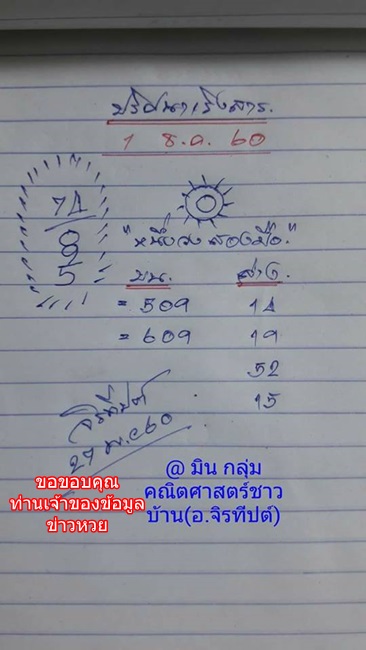 ปริศนาเริงสาร.
1 ธ.ค. 60
74
0
9
5
0
"หนึ่งวง สองมือ."
บน. ล่าง.
= 509 14
= 609 19
52
15
จิรทีปต์
27 พ.ย 60
@ มิน กลุ่ม
คณิตศาสตร์ชาว
บ้าน(อ.จิรทีปต์)
ขอขอบคุณ
ท่านเจ้าของข้อมูล
ข่าวหวย